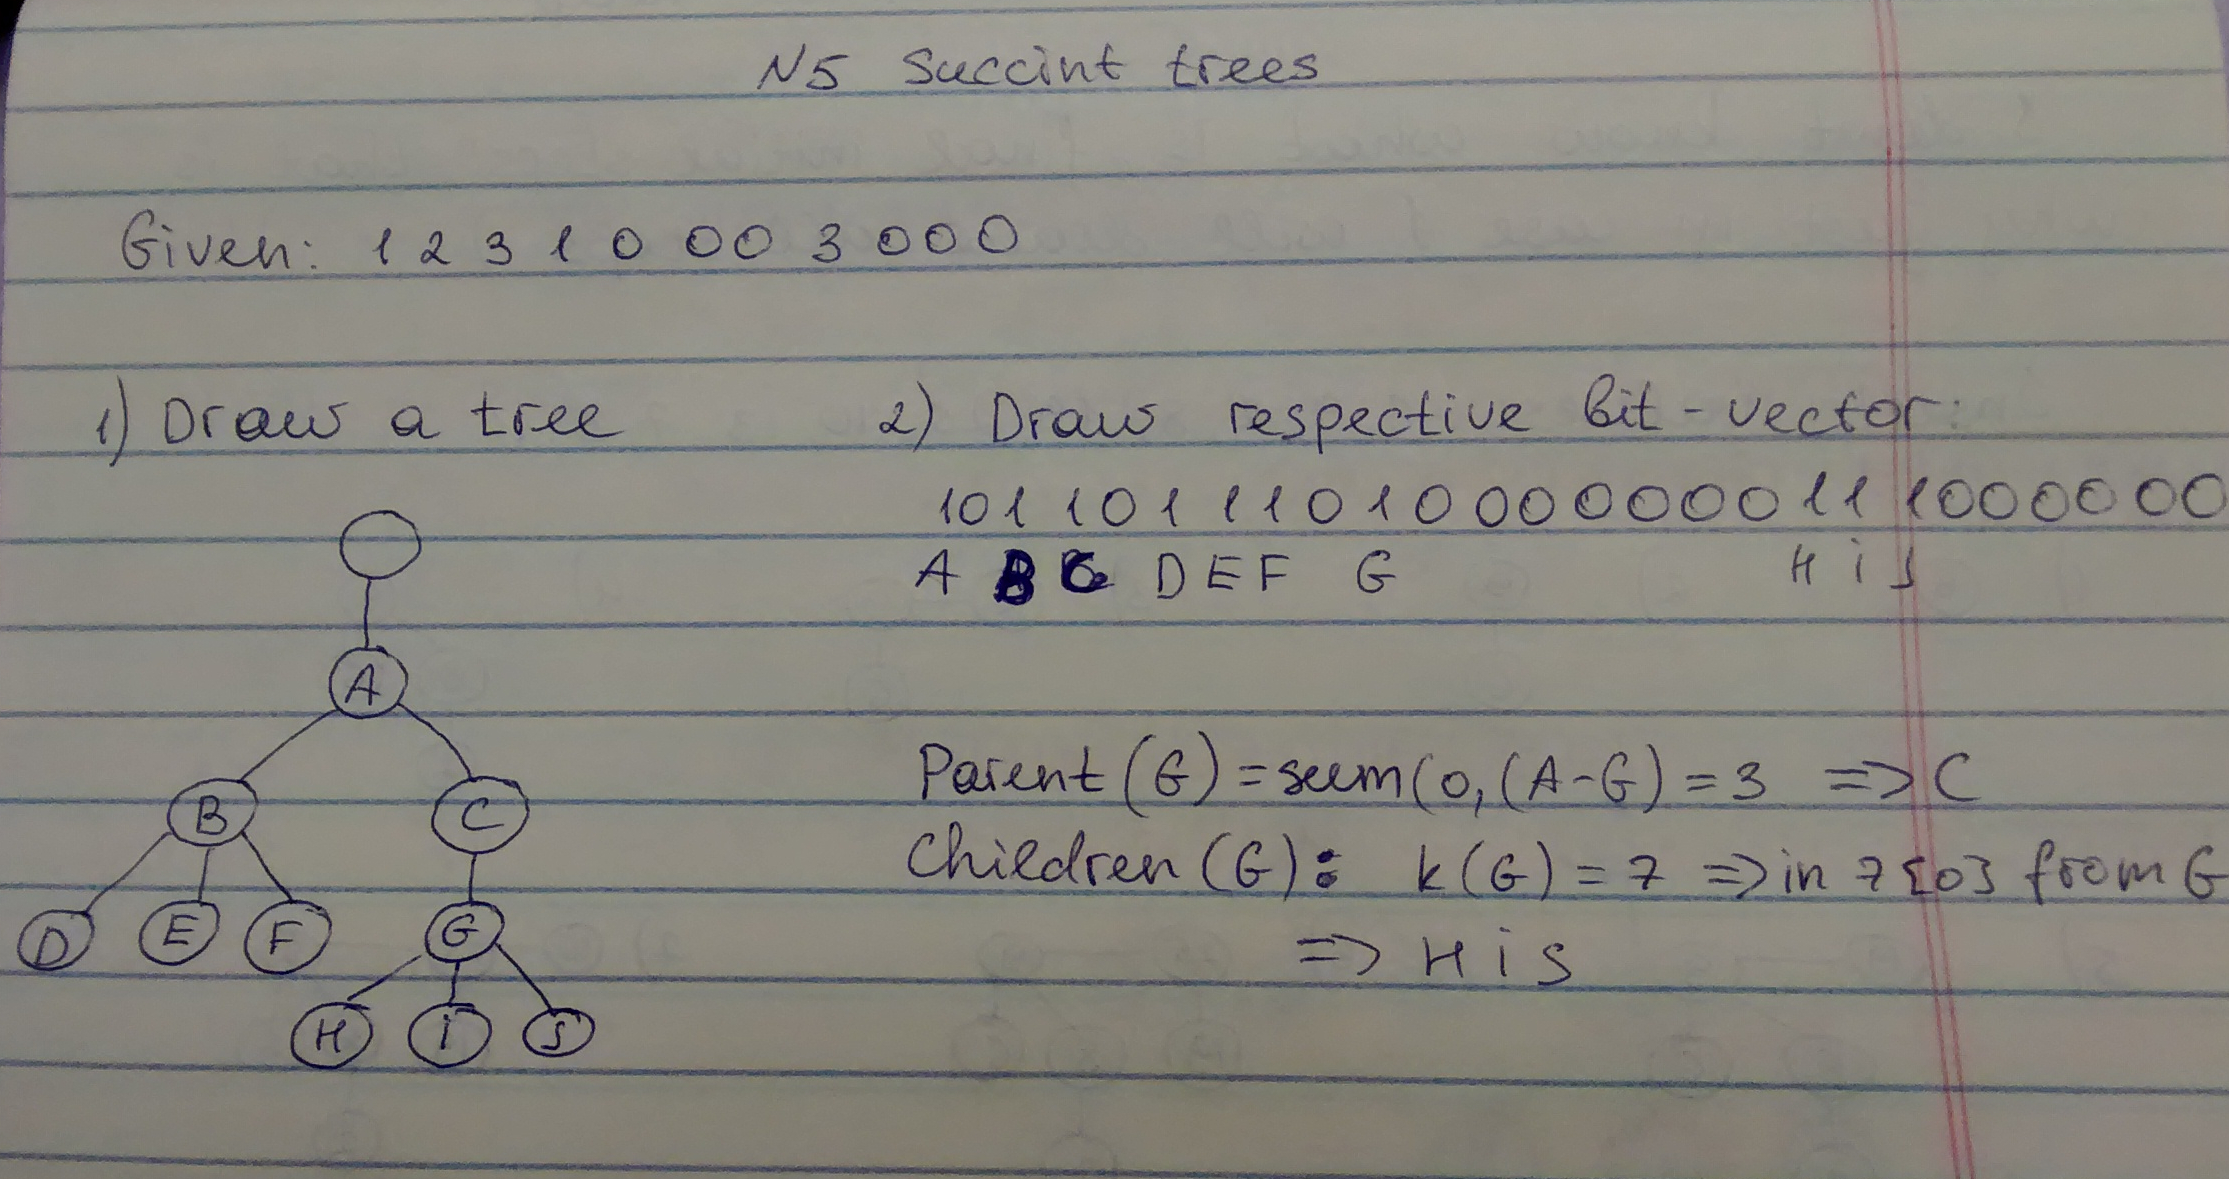 N5 Succint trees
Given: 1 2 3 1 0 0 0 3 0 0 0
1) Draw a tree
2) Draw respective bit-vector:
1 0 1 1 0 1 1 1 0 1 0 0 0 0 0 0 0 1 1 1 0 0 0 0 0 0
A B C D E F G H i J
A
B C
D E F G
H i J
Parent (G) = sum (0, (A-G) = 3 => C
Children (G): k (G) = 7 => in 7 {0} from G
=> H i J